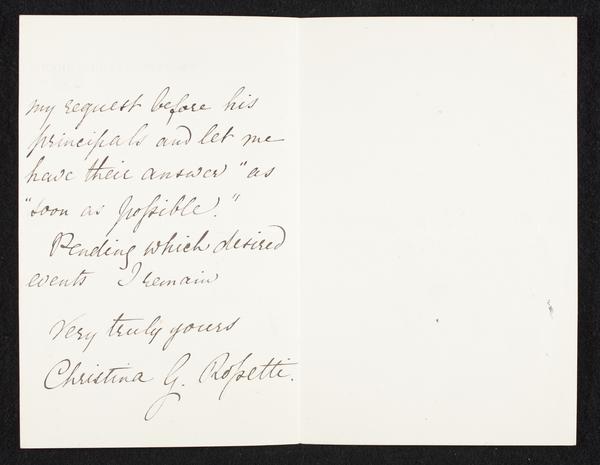 my request before his
principals and let me
have their answer "as
"soon as poſsible."
Pending which desired
events I remain
Very truly yours
Christina G. Roſsetti.